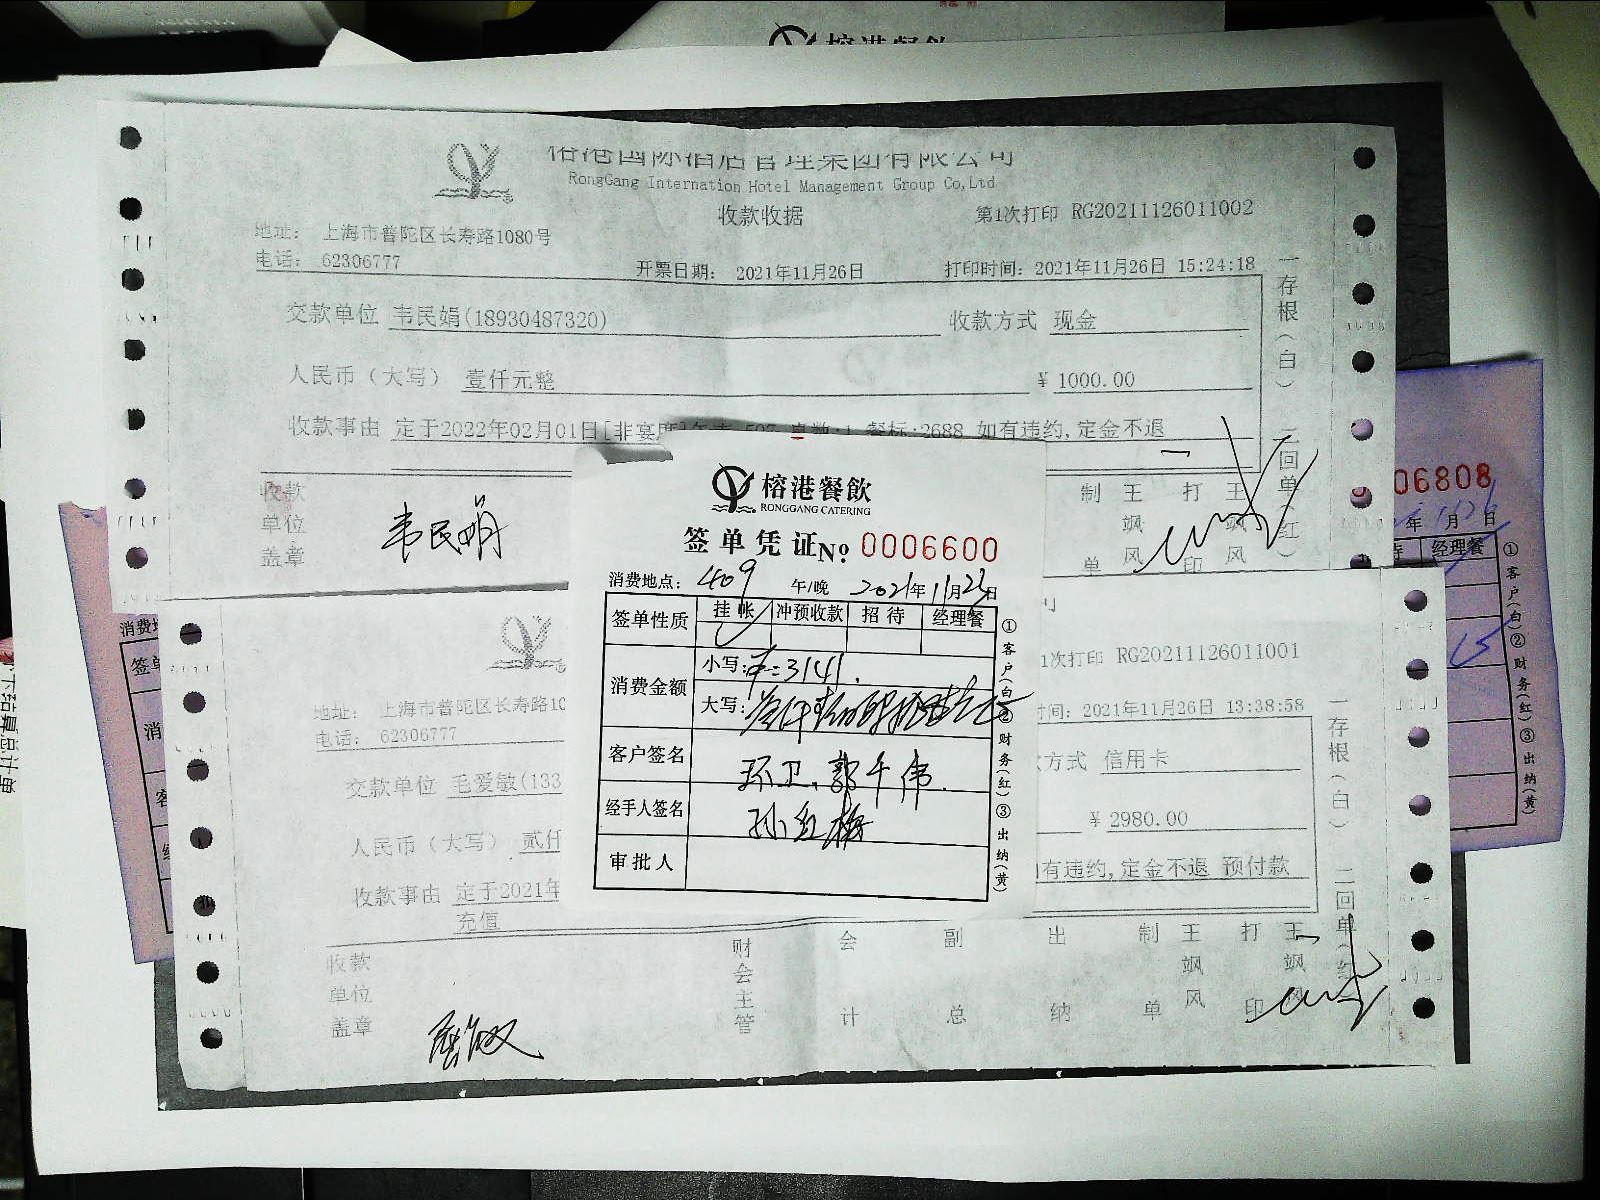 榕港国际酒店管理集团有限公司
RongGang Internation Hotel Management Group Co,Ltd
收款收据
第1次打印 RG20211126011002
地址: 上海市普陀区长寿路1080号
电话: 62306777
开票日期: 2021年11月26日
打印时间: 2021年11月26日 15:24:18
交款单位 韦民娟(18930487320)
收款方式 现金
人民币(大写) 壹仟元整
¥ 1000.00
收款事由 定于2022年02月01日[非宴席]
桌数:1 餐标:2688 如有违约,定金不退
收款单位盖章
韦民娟
制单 王飒风 打印 王飒风
一存根(白) 二回单(红)
榕港餐飲
RONGGANG CATERING
签单凭证 No. 0006600
消费地点: 409 午/晚 2021年11月23日
签单性质 挂帐 冲预收款 招待 经理餐
消费金额 小写: 3141.
大写:
客户签名 环卫、郭千伟
经手人签名 孙红梅
审批人
①客户(白)②财务(红)③出纳(黄)
1次打印 RG20211126011001
地址: 上海市普陀区长寿路10
电话: 62306777
时间: 2021年11月26日 13:38:58
交款单位 毛爱敏(133
方式 信用卡
人民币(大写) 贰仟
¥ 2980.00
收款事由 定于2021年
有违约,定金不退 预付款
充值
收款单位盖章
财会主管 会计 副总 出纳 制单 王飒风 打印 王飒风
一存根(白) 二回单(红)
06808
年 月 日
经理餐
①客户(白)②财务(红)③出纳(黄)
榕港餐飲